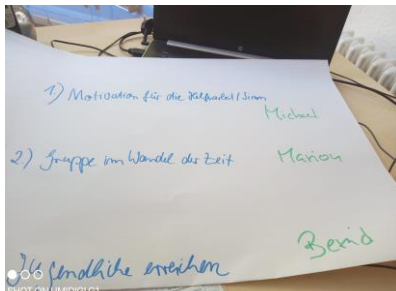 1) Motivation für die Hilfarbeit/Sinn
Michael
2) Gruppe im Wandel der Zeit
Marion
Jugendliche erreichen
Bernd
SHOT ON UMIDIGI G1